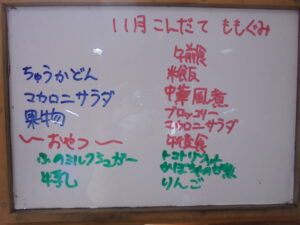 11月こんだて ももぐみ
ちゅうかどん
マカロニサラダ
果物
〜おやつ〜
ふのミルクシュガー
牛乳
午前食
米飯
中華風煮
ブロッコリー
マカロニサラダ
午後食
トマトリゾット
かぼちゃの甘煮
りんご